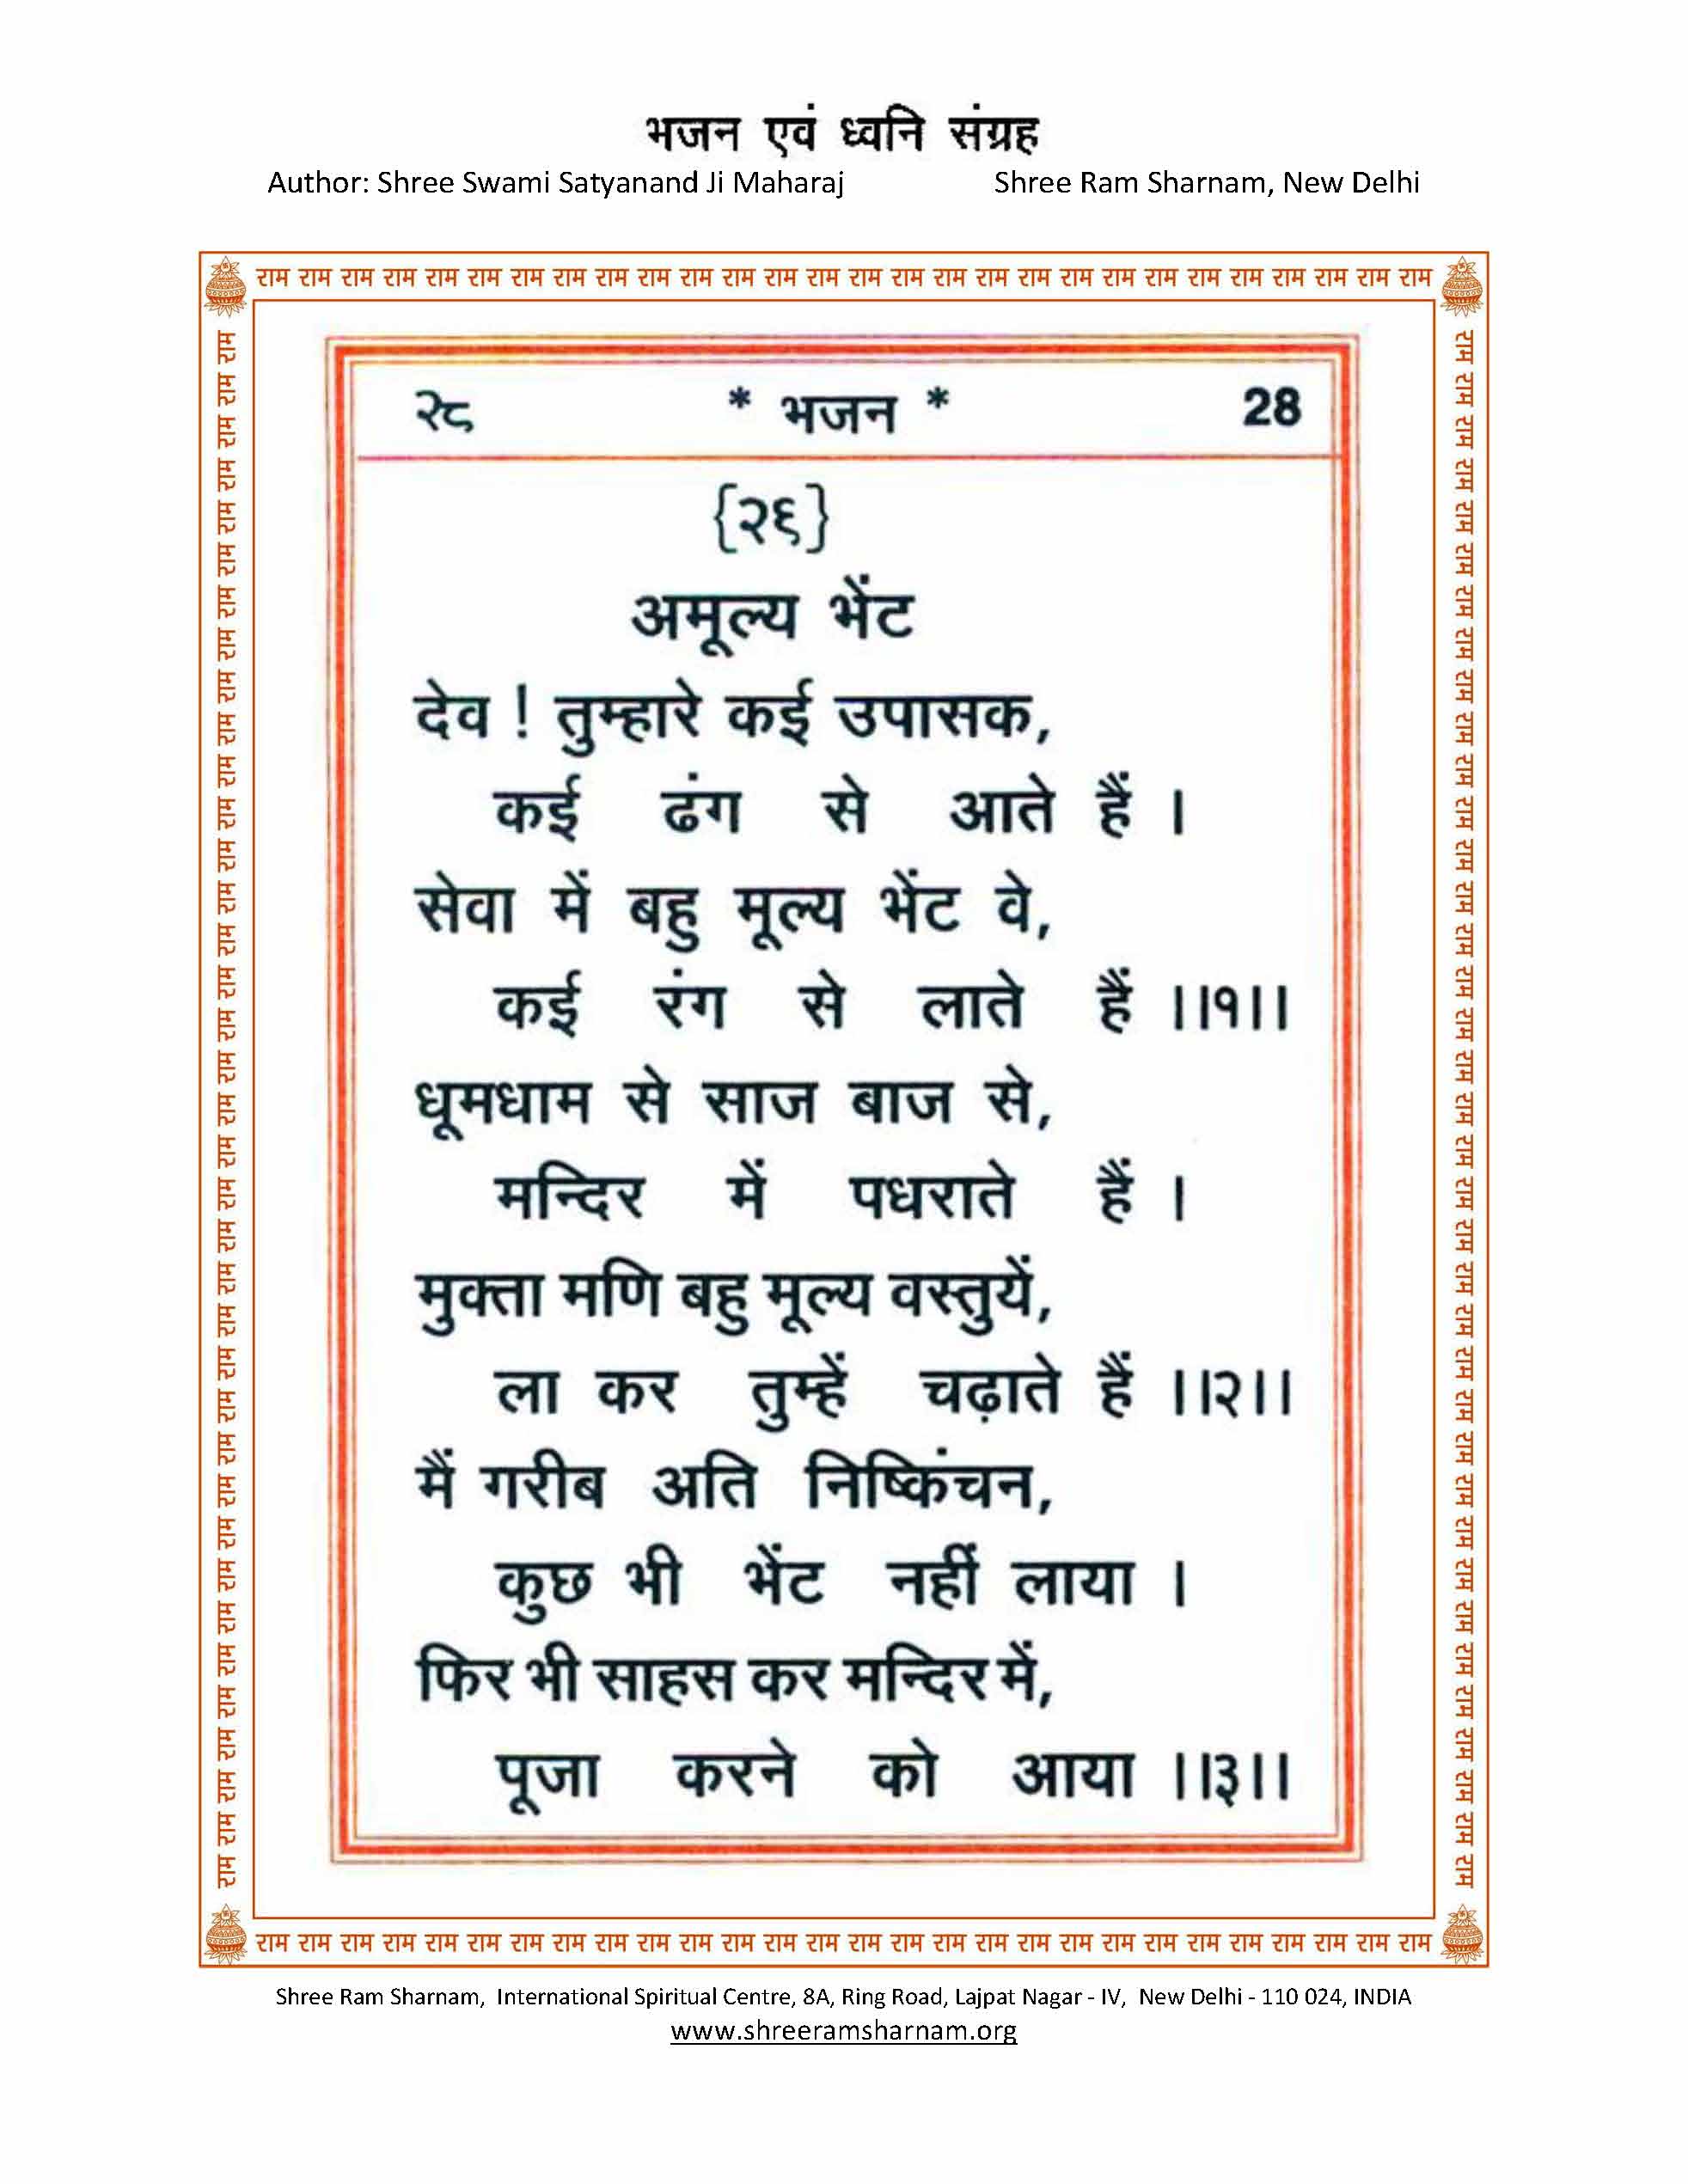 भजन एवं ध्वनि संग्रह
Author: Shree Swami Satyanand Ji Maharaj Shree Ram Sharnam, New Delhi
राम राम राम राम राम राम राम राम राम राम राम राम राम राम राम राम राम राम राम राम राम राम राम राम राम राम राम राम
राम राम राम राम राम राम राम राम राम राम राम राम राम राम राम राम राम राम राम राम राम राम राम राम राम राम राम राम राम राम राम राम राम राम राम राम राम
२८ * भजन * 28
{२६}
अमूल्य भेंट
देव ! तुम्हारे कई उपासक,
कई ढंग से आते हैं ।
सेवा में बहु मूल्य भेंट वे,
कई रंग से लाते हैं ।।१।।
धूमधाम से साज बाज से,
मन्दिर में पधराते हैं ।
मुक्ता मणि बहु मूल्य वस्तुयें,
ला कर तुम्हें चढ़ाते हैं ।।२।।
मैं गरीब अति निष्किंचन,
कुछ भी भेंट नहीं लाया ।
फिर भी साहस कर मन्दिर में,
पूजा करने को आया ।।३।।
राम राम राम राम राम राम राम राम राम राम राम राम राम राम राम राम राम राम राम राम राम राम राम राम राम राम राम राम राम राम राम राम राम राम राम राम राम
राम राम राम राम राम राम राम राम राम राम राम राम राम राम राम राम राम राम राम राम राम राम राम राम राम राम राम राम
Shree Ram Sharnam, International Spiritual Centre, 8A, Ring Road, Lajpat Nagar - IV, New Delhi - 110 024, INDIA
www.shreeramsharnam.org